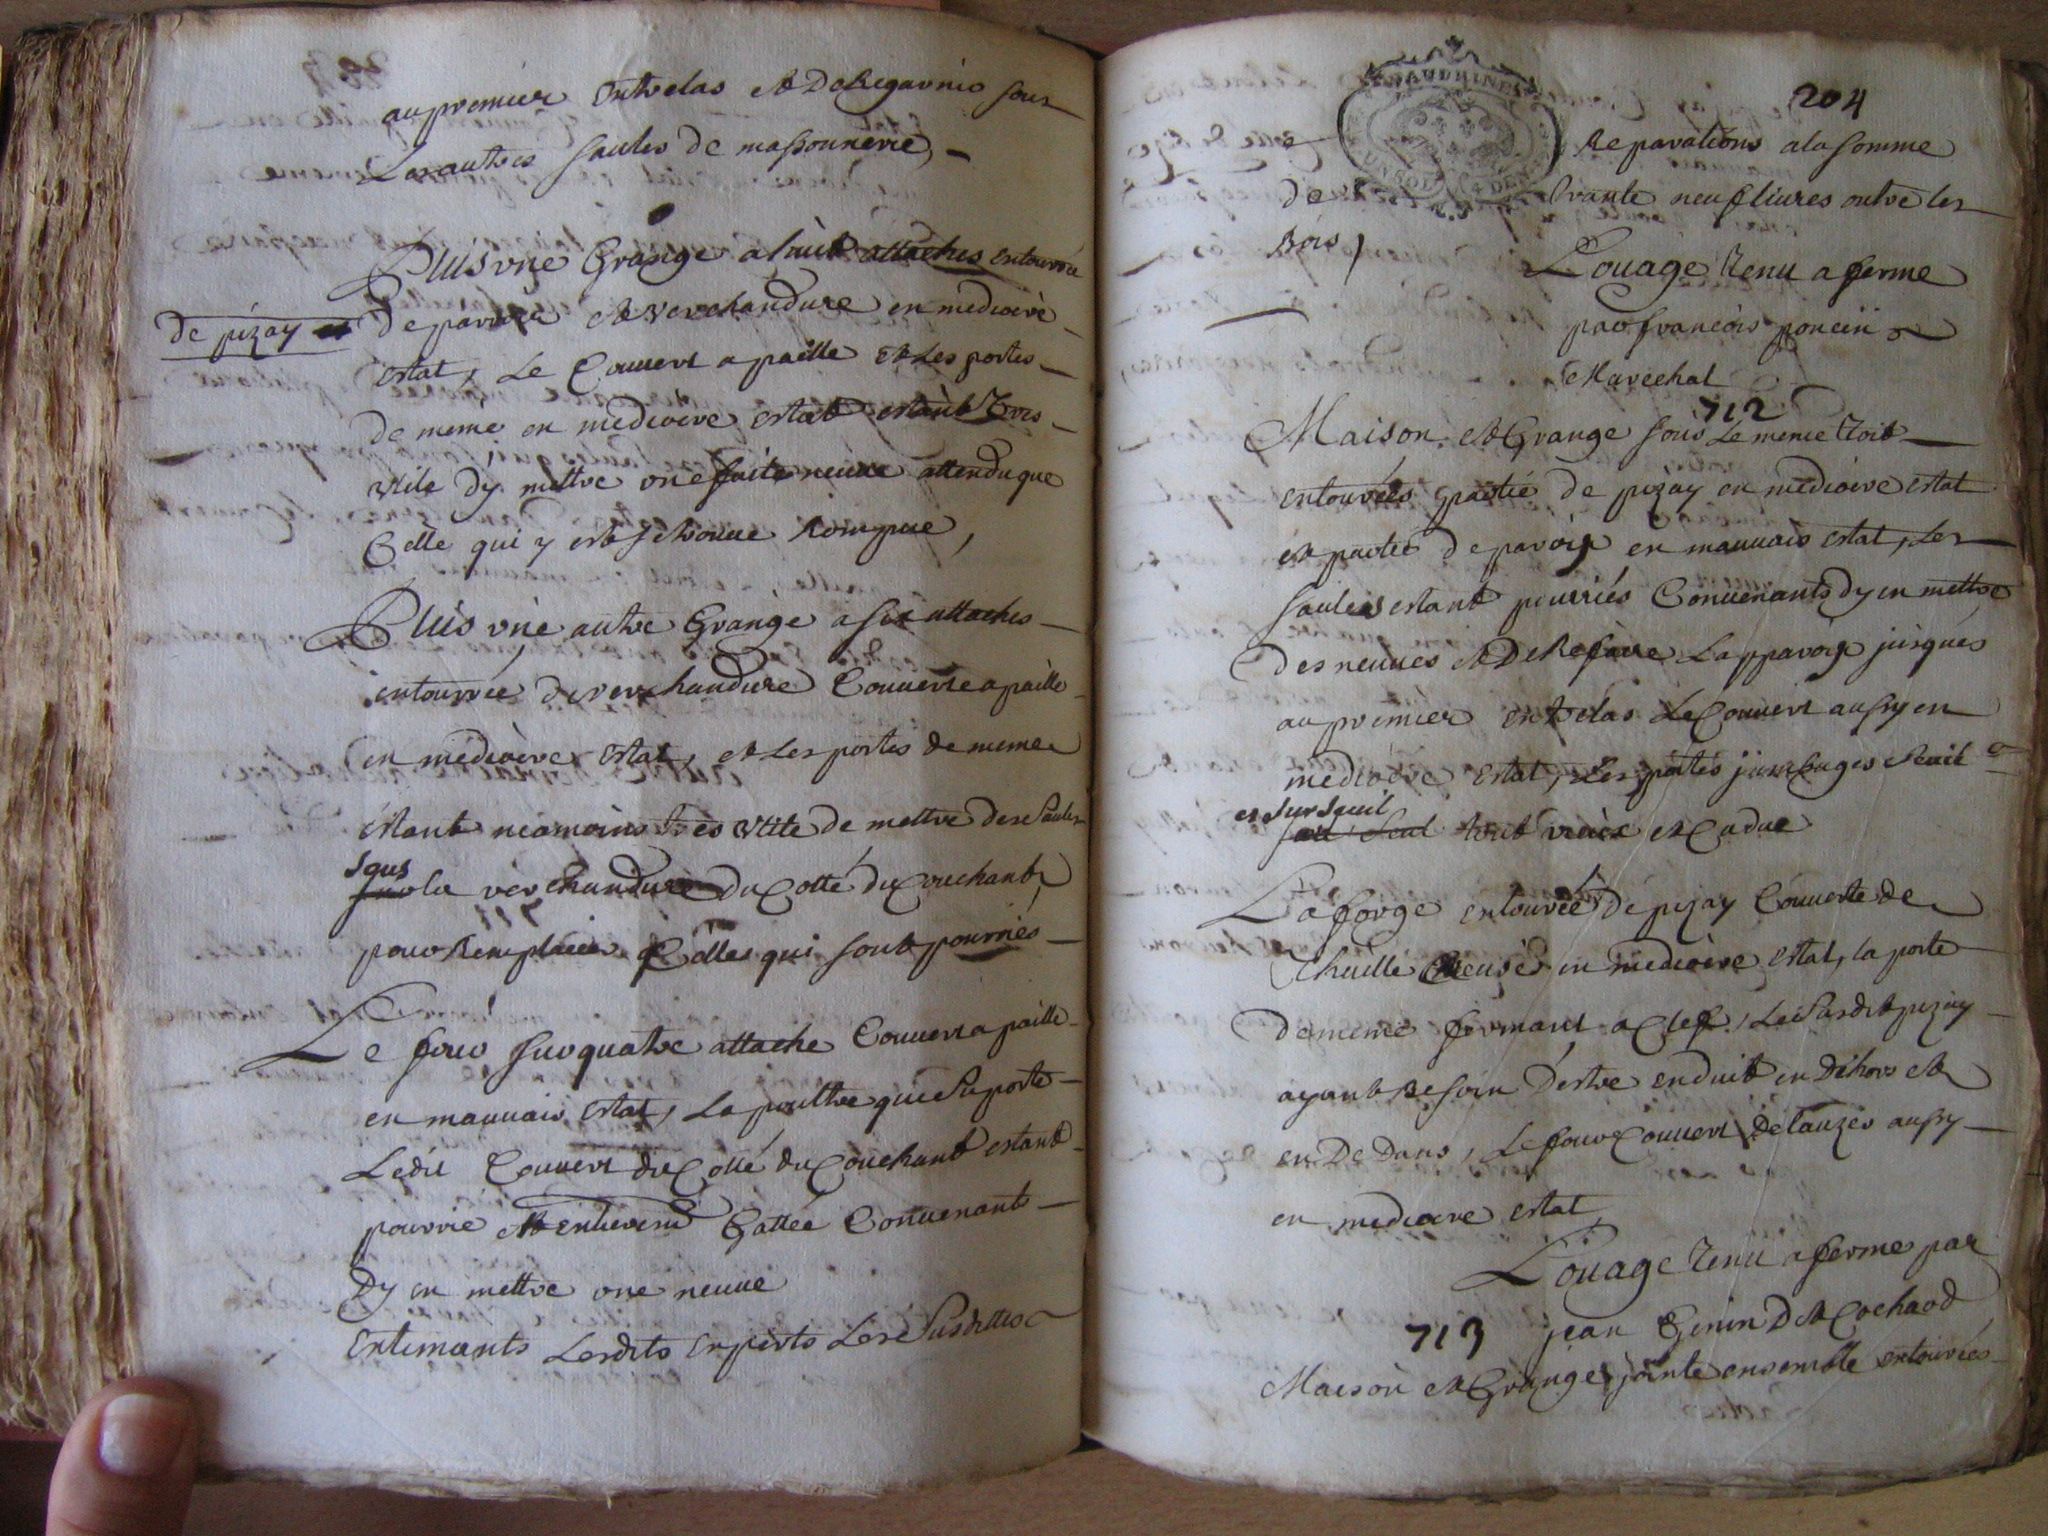 au premier Entrelas et De Regarnir sous
Les autres saules de massonnerie,
Plus une Grange a huit attaches entourée
de pizay
De parroie et Verchandure en mediocre
estat, Le Couvert a paille et Les portes
de meme en mediocre estat estant Tres
utile dy mettre une faite neuve attendu que
Celle qui y est se trouve Rompue,
Plus une autre Grange a six attaches
entourrée de verchandure Couverte a paille
en mediocre Estat, et Les portes de meme
estant neamoins tres utile de mettre des saules
sous
sur la verchandure Du Cotté du Couchant,
pour Remplacer Celles qui sont pourries
Le four sur quatre attache Couvert a paille
en mauvais Estat, La pouttre qui suporte
Ledit Couvert du Cotté du Couchant estant
pourrie et entierem Gattée Convenants
Dy en mettre une neuve
Estimants Lesdits Experts Les susdittes
204
Reparations a la somme
de trante neuf livres outre les
Bois,
Louage Tenu a ferme
par francois poncin
Marechal
712
Maison et Grange sous Le meme Toit
entourées partie de pizay en mediocre estat
et partie de paroix en mauvais estat, Les
saules estant pourries Convenants dy en mettre
des neuves et De Refaire La pparoix jusques
au premier entrelas Le Couvert aussy en
mediocre estat, Les portes jambages seuil
et sur seuil
tout vieux et Caduc
La forge entourée de pizay Couverte de
Thuille Creuse en mediocre estat, la porte
de meme fermant a Clef, Le susdit pizay
ayant Besoin D'estre enduit en Dehors et
en De Dans, Le four Couvert De lauzes aussy
en mediocre estat
Louage Tenu a ferme par
713
jean Genin D et Cochard
Maison et Grange jointe ensemble entourées